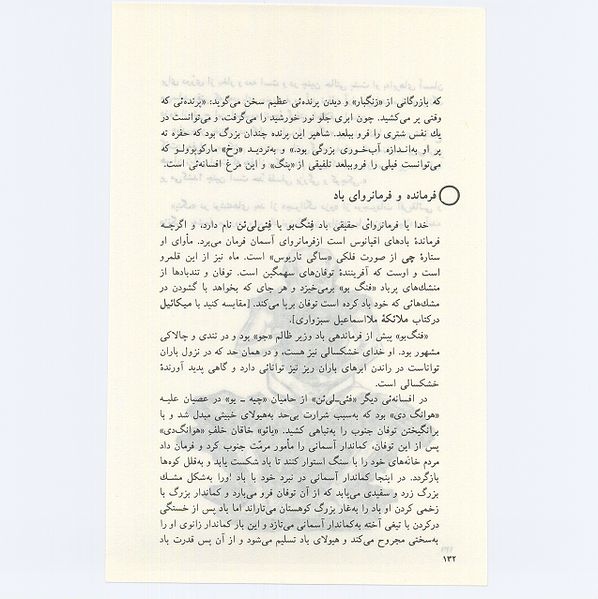 که بازرگانی از «زنگبار» و دیدن پرنده‌ئی عظیم سخن می‌گوید: «پرنده‌ئی که
وقتی پر می‌کشید. چون ابری جلو نور خورشید را می‌گرفت، و می‌توانست در
یك نفس شتری را فرو ببلعد. شاهپر این پرنده چندان بزرگ بود که حفره ته
پر او به‌اندازه آب‌خوری بزرگی بود.» و به‌تردید «رخ» مارکوپولو که
می‌توانست فیلی را فروببلعد تلفیقی از «پنگ» و این مرغ افسانه‌ئی است.
فرمانده و فرمانروای باد
خدا یا فرمانروای حقیقی باد فِنگ‌بو یا فِئی‌لی‌ئن نام دارد، و اگرچه
فرماندهٔ بادهای اقیانوس است ازفرمانروای آسمان فرمان می‌برد. مأوای او
ستارهٔ چی از صورت فلکی «ساگی تاریوس» است. ماه نیز از این قلمرو
است و اوست که آفرینندهٔ توفان‌های سهمگین است. توفان و تندبادها از
مشك‌های پرباد «فنگ بو» برمی‌خیزد و هر جای که بخواهد با گشودن در
مشك‌هائی که خود باد کرده است توفان برپا می‌کند. [مقایسه کنید با میکائیل
درکتاب ملائکهٔ ملااسماعیل سبزواری].
«فنگ‌بو» پیش از فرماندهی باد وزیر ظالم «جو» بود و در تندی و چالاکی
مشهور بود. او خدای خشکسالی نیز هست، و در همان حد که در نزول باران
تواناست در راندن ابرهای باران ریز نیز توانائی دارد و گاهی پدید آورندهٔ
خشکسالی است.
در افسانه‌ئی دیگر «فئی‌ـ‌لی‌ئن» از حامیان «چیه ـ یو» در عصیان علیه
«هوانگ دی» بود که به‌سبب شرارت بی‌حد به‌هیولای خبیثی مبدل شد و با
برانگیختن توفان جنوب را به‌تباهی کشید. «یائو» خاقان خلفِ «هوانگ‌دی»
پس از این توفان، کماندار آسمانی را مأمور مرمّت جنوب کرد و فرمان داد
مردم خانه‌های خود را با سنگ استوار کنند تا باد شکست یابد و به‌قلل کوه‌ها
بازگردد. در اینجا کماندار آسمانی در نبرد خود با باد او‌را به‌شکل مشك
بزرگ زرد و سفیدی می‌یابد که از آن توفان فرو می‌بارد و کماندار بزرگ با
زخمی کردن او باد را به‌غار بزرگ کوهستان می‌تاراند اما باد پس از خستگی
درکردن با تیغی آخته به‌کماندار آسمانی می‌تازد و این بار کماندار زانوی او را
به‌سختی مجروح می‌کند و هیولای باد تسلیم می‌شود و از آن پس قدرت باد
۱۳۲